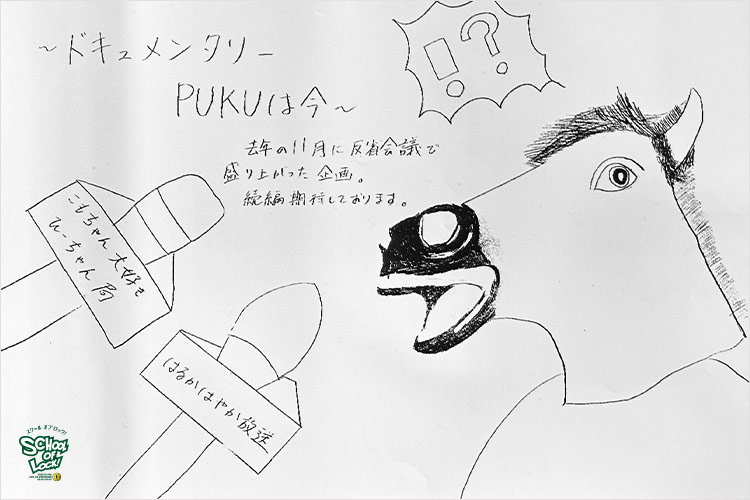 ～ドキュメンタリー
PUKUは今～
!?
去年の11月に反省会議で
盛り上がった企画。
続編期待しております。
こもちゃん大好き
ひーちゃん局
はるかはやか放送
スクール オブ ロック!
SCHOOL
OF
LOCK!